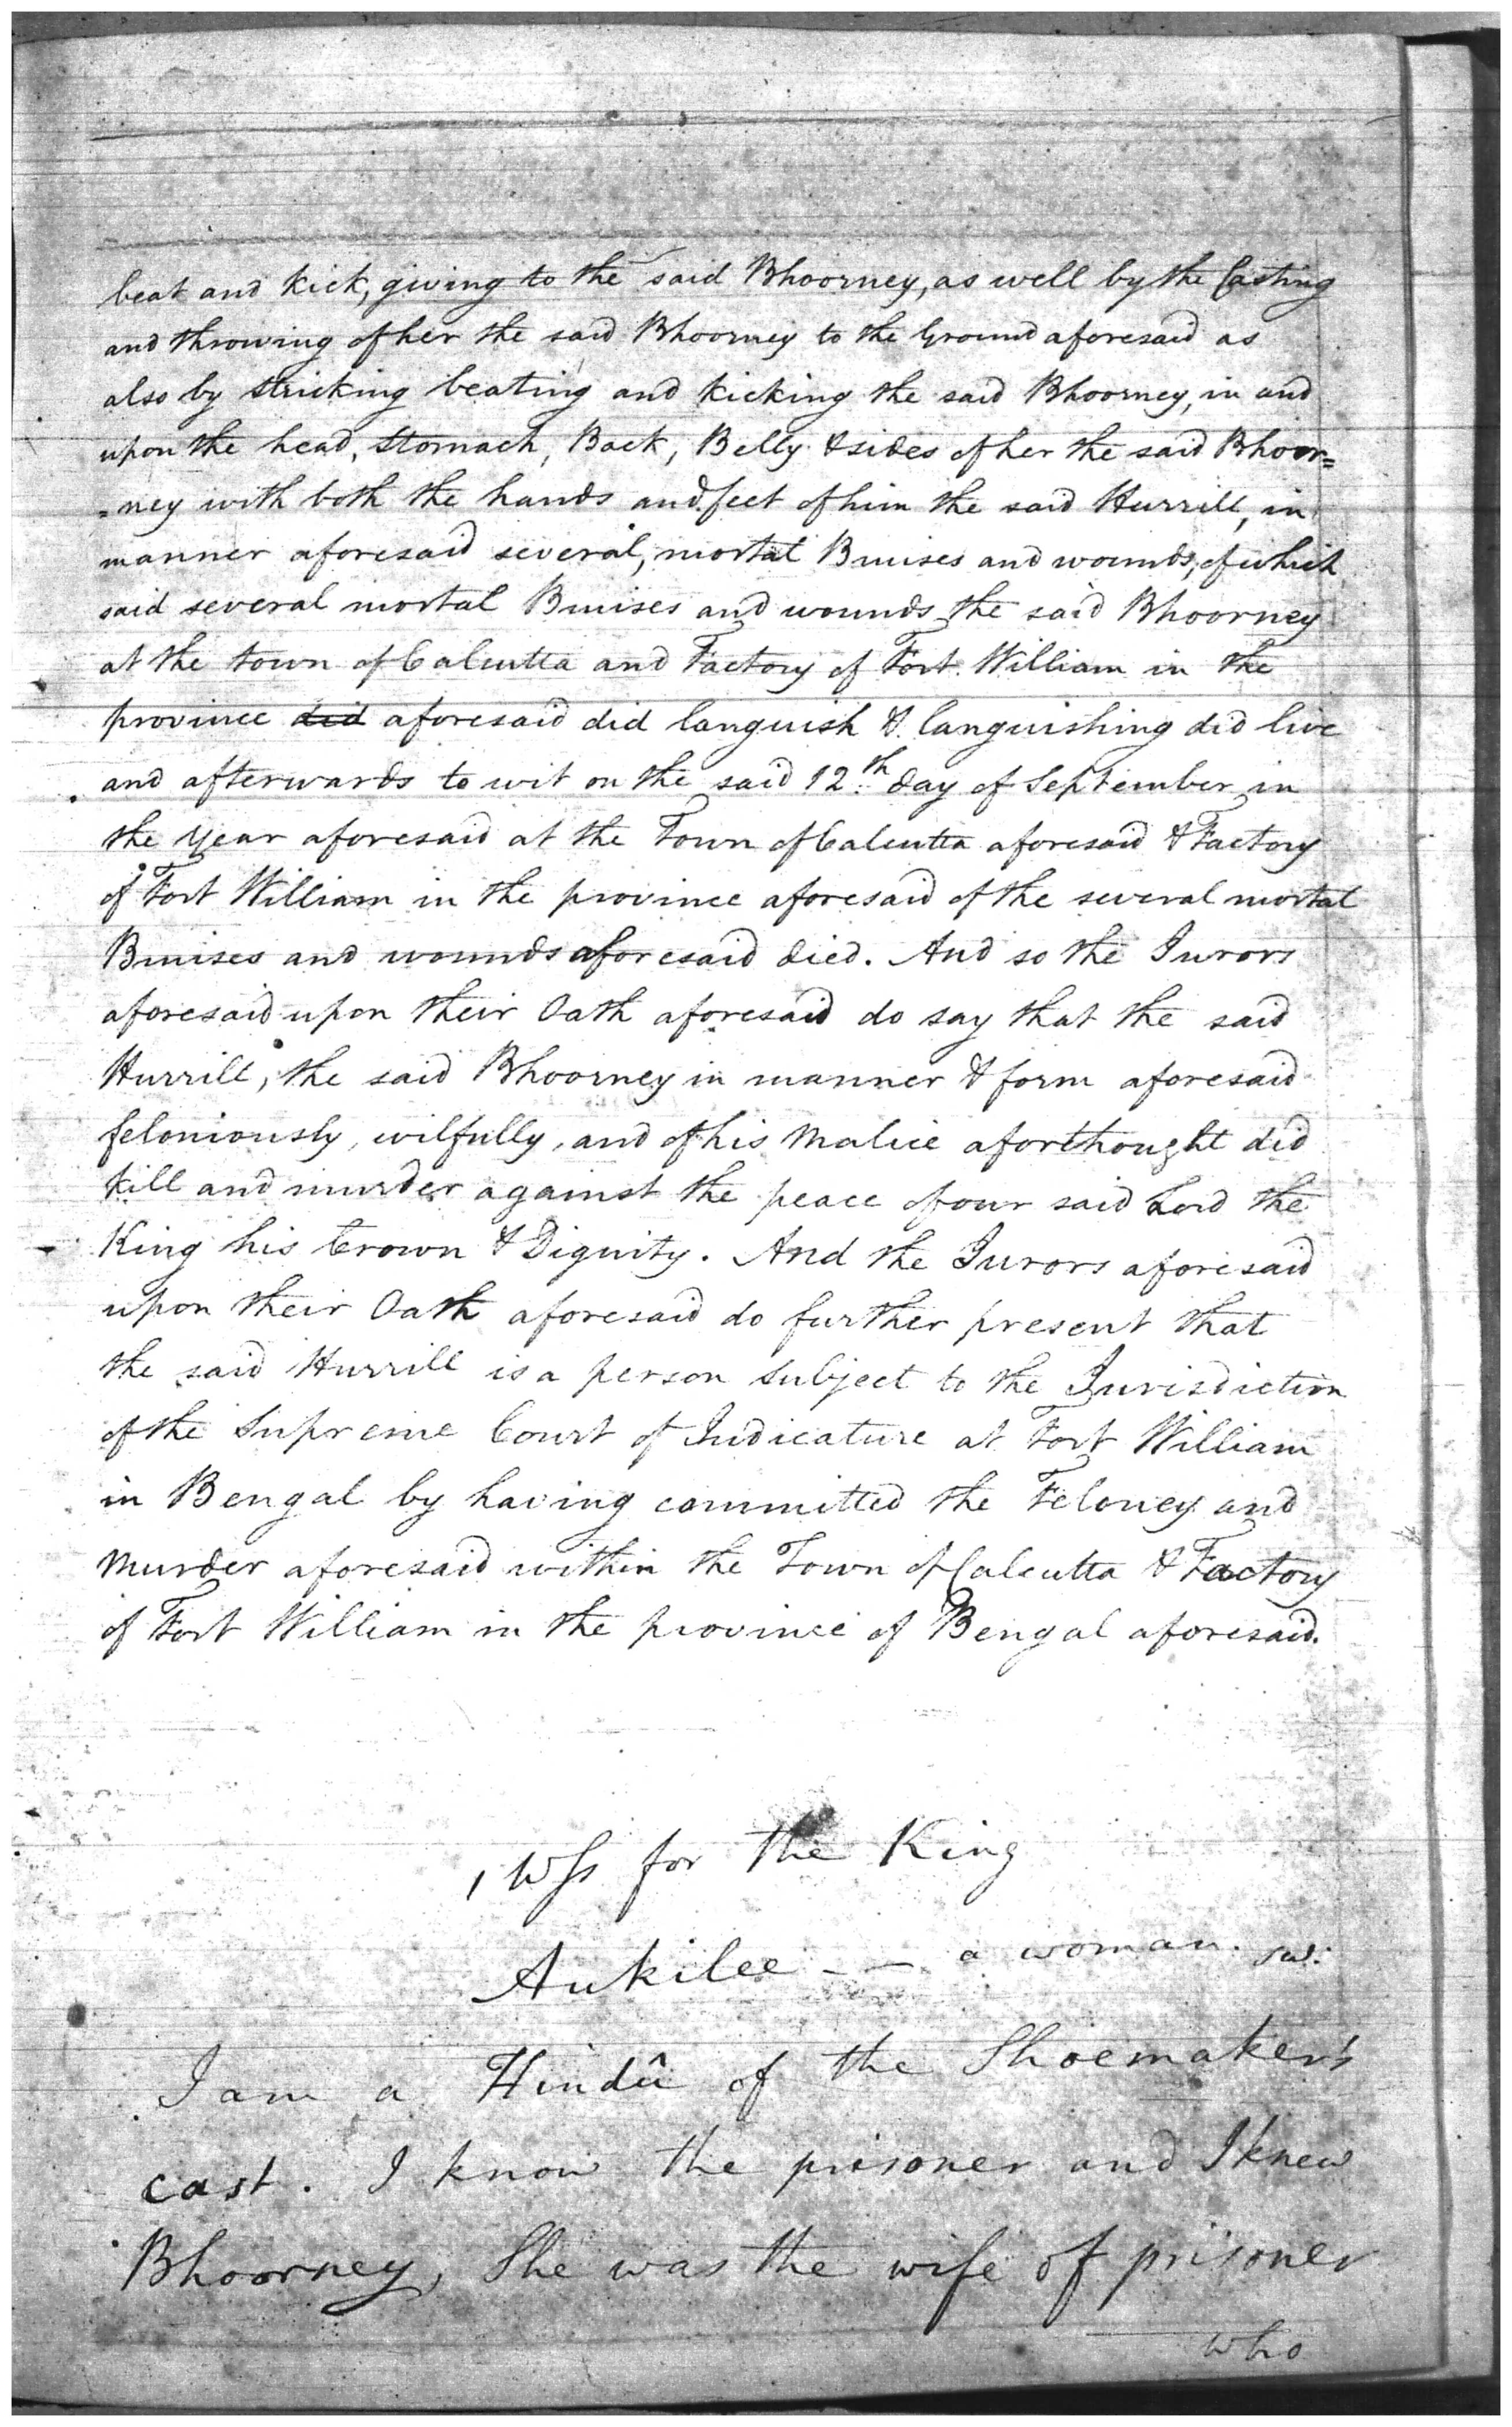 beat and kick, giving to the said Bhoorney, as well by the Casting
and throwing of her the said Bhoorney to the Ground aforesaid as
also by stricking beating and kicking the said Bhoorney, in and
upon the head, Stomach, Back, Belly & sides of her the said Bhoor=
=ney with both the hands and feet of him the said Hurrill, in
manner aforesaid several, mortal Bruises and wounds, of which
said several mortal Bruises and wounds the said Bhoorney
at the town of Calcutta and Factory of Fort William in the
province did aforesaid did languish & languishing did live
and afterwards to wit on the said 12th day of September in
the Year aforesaid at the Town of Calcutta aforesaid & Factory
of Fort William in the province aforesaid of the several mortal
Bruises and wounds aforesaid died. And so the Jurors
aforesaid upon their Oath aforesaid do say that the said
Hurrill, the said Bhoorney in manner & form aforesaid
feloniously, wilfully, and of his Malice aforthought did
kill and murder against the peace of our said Lord the
King his Crown & Dignity. And the Jurors aforesaid
upon their Oath aforesaid do further present that
the said Hurrill is a person Subject to the Jurisdiction
of the Supreme Court of Judicature at Fort William
in Bengal by having committed the Feloney and
Murder aforesaid within the Town of Calcutta & Factory
of Fort William in the province of Bengal aforesaid.
1 Wss for the King
Aukilee -- a woman. sw:
I am a Hindû of the Shoemaker's
cast. I know the prisoner and I knew
Bhoorney, She was the wife of prisoner
who